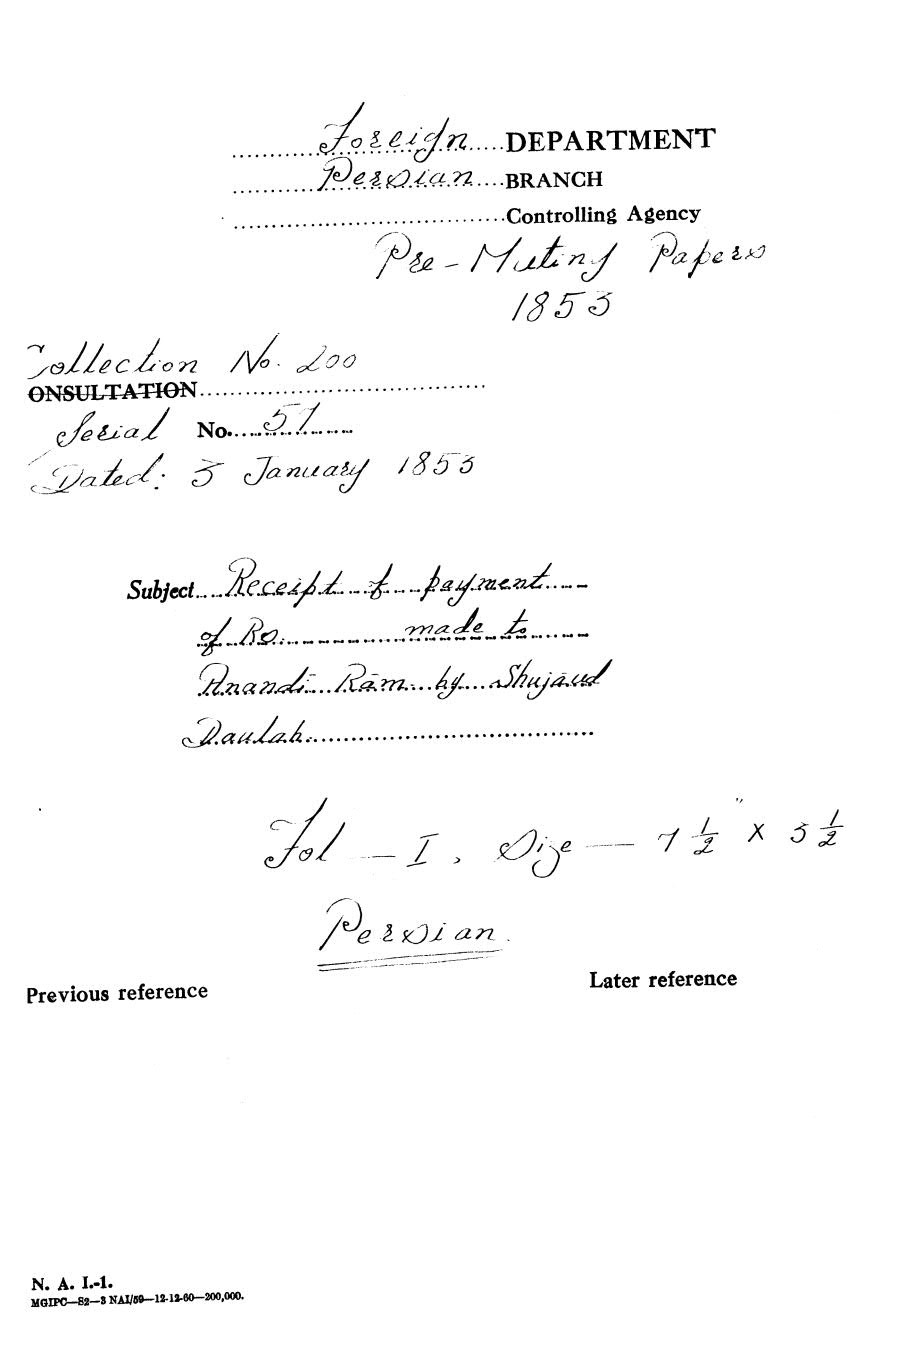 Foreign DEPARTMENT
Persian BRANCH
Controlling Agency
Pre-Mutiny Papers
1853
Collection No. 200
ONSULTATION
Serial No. 51
Dated: 3 January 1853
Subject Receipt of payment
of Rs. made to
Anandi Rām by Shujāud
Daulah
Fol — I, Size — 7 1/2" X 5 1/2
Persian.
Previous reference Later reference
N. A. I.-1.
MGIPC—S2—3 NAI/59—12-12-60—200,000.